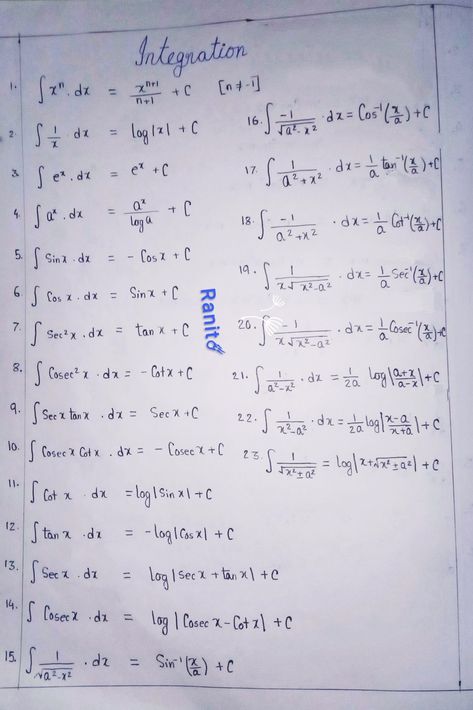 Integration
1. ∫ xⁿ. dx = xⁿ⁺¹/n+1 + C [n ≠ -1]
2. ∫ 1/x dx = log|x| + C
3. ∫ eˣ. dx = eˣ + C
4. ∫ aˣ. dx = aˣ/log a + C
5. ∫ Sinx . dx = - Cosx + C
6. ∫ Cosx . dx = Sinx + C
7. ∫ Sec²x . dx = tanx + C
8. ∫ Cosec²x . dx = - Cotx + C
9. ∫ Secx tanx . dx = Secx + C
10. ∫ Cosecx Cotx . dx = - Cosecx + C
11. ∫ Cotx . dx = log|Sinx| + C
12. ∫ tanx . dx = -log|Cosx| + C
13. ∫ Secx . dx = log|Secx + tanx| + C
14. ∫ Cosecx . dx = log|Cosecx - Cotx| + C
15. ∫ 1/√a²-x² . dx = Sin⁻¹(x/a) + C
16. ∫ -1/√a²-x² . dx = Cos⁻¹(x/a) + C
17. ∫ 1/a²+x² . dx = 1/a tan⁻¹(x/a) + C
18. ∫ -1/a²+x² . dx = 1/a Cot⁻¹(x/a) + C
19. ∫ 1/x√x²-a² . dx = 1/a Sec⁻¹(x/a) + C
20. ∫ -1/x√x²-a² . dx = 1/a Cosec⁻¹(x/a) + C
21. ∫ 1/a²-x² . dx = 1/2a log|a+x/a-x| + C
22. ∫ 1/x²-a² . dx = 1/2a log|x-a/x+a| + C
23. ∫ 1/√x²±a² = log|x+√x²±a²| + C
Ranit